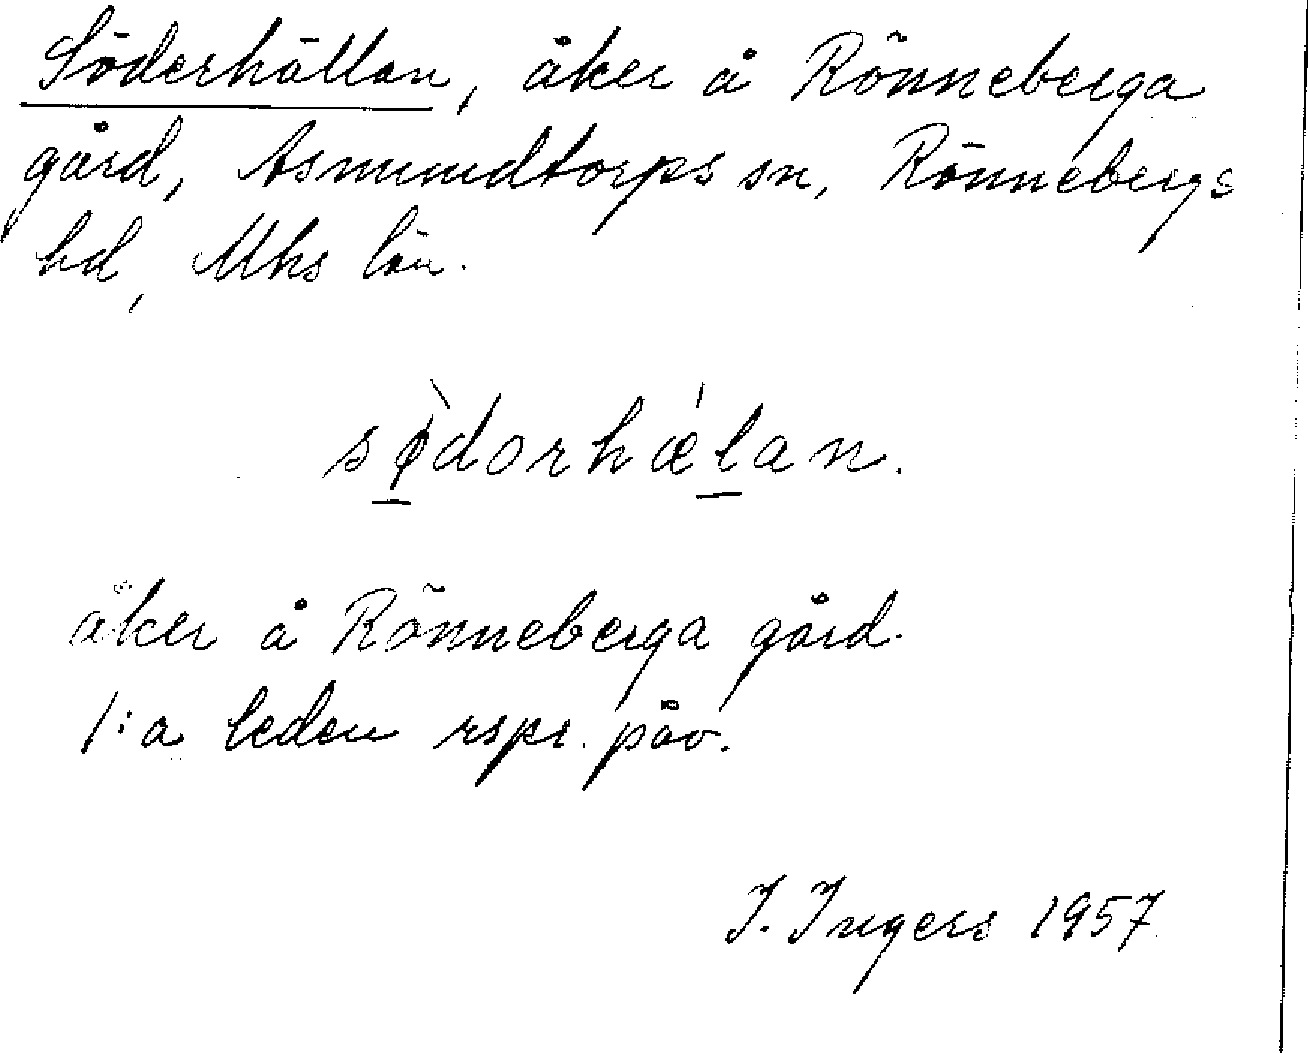 Söderhällan, åker å Rönneberga
gård, Asmundtorps sn, Rönnebergs
hd, Mhs län.
sø̀dorhǽlan.
åker å Rönneberga gård.
1:a leden rspr. påv.
I. Ingers 1957